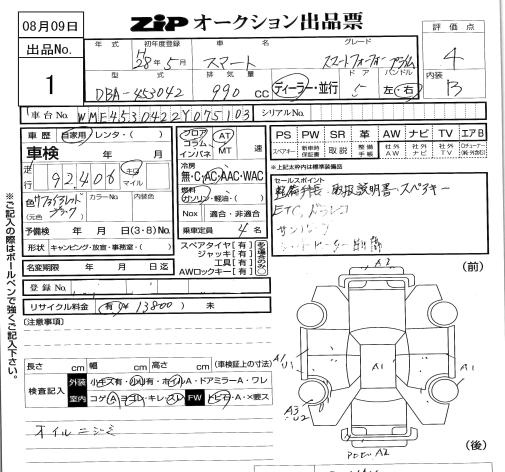 08月09日
ZIP オークション出品票
評価点
4
内装
B
出品No.
1
年式 初年度登録 車名 グレード
H 28年5月 スマート スマートフォーフォー
型式 排気量 ドア ハンドル
DBA-453042 990 cc ディーラー・並行 5 左・右
車台No. WMF4530422Y075103 シリアルNo.
車歴 自家用 レンタ・( )
車検 年 月
走行 92,406 キロ マイル
色 ブラック (元色) カラーNo. 内装色
予備検 年 月 日(3・8)No.
形状 キャンピング・放宣・事務室・( )
名変期限 年 月 日迄
登録No.
リサイクル料金 (有 ¥13800) 未
フロア コラム インパネ AT MT 速
冷房
無・C・AC・AAC・WAC
燃料
ガソリン・軽油・( )
Nox 適合・非適合
乗車定員 4 名
スペアタイヤ[有]
ジャッキ[有]
工具[有]
AWロックキー[有]
PS PW SR 革 AW ナビ TV エアB
スペアキー 新車時保証書 取説 整備手帳 社外AW 社外ナビ 社外TV
※上記太ワク内は標準装備品
セールスポイント
整備手帳・取扱説明書・スペアキー
ETC、ドラレコ
[注意事項]
長さ cm 幅 cm 高さ cm (車検証上の寸法)
検査記入
外装 小キズ有・小凹有・ホイルA・ドアミラーA・ワレ
室内 コゲA・ヨゴレ・キレ・スレ FW トビ石・A・×要ス
オイルニジミ
※ご記入の際はボールペンで強くご記入下さい。
(前)
A2
A1
U1
A1
A1
A3
U2
A2
(後)